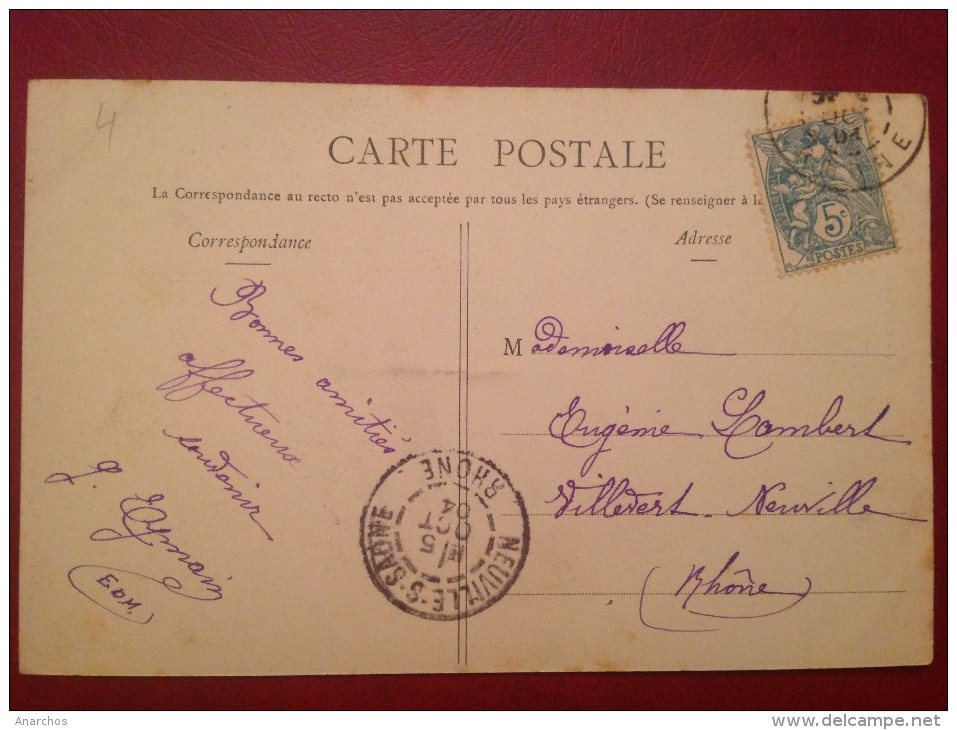 4
CARTE POSTALE
La Correspondance au recto n'est pas acceptée par tous les pays étrangers. (Se renseigner à la
Correspondance
Bonnes amitiés
affectueux
souvenir
E.D.M.
Adresse
5c
POSTES
Mademoiselle
Eugénie Lambert
Villevert-Neuville
(Rhône)
NEUVILLE-S-SAONE
5
OCT
04
RHÔNE
Anarchos
www.delcampe.net